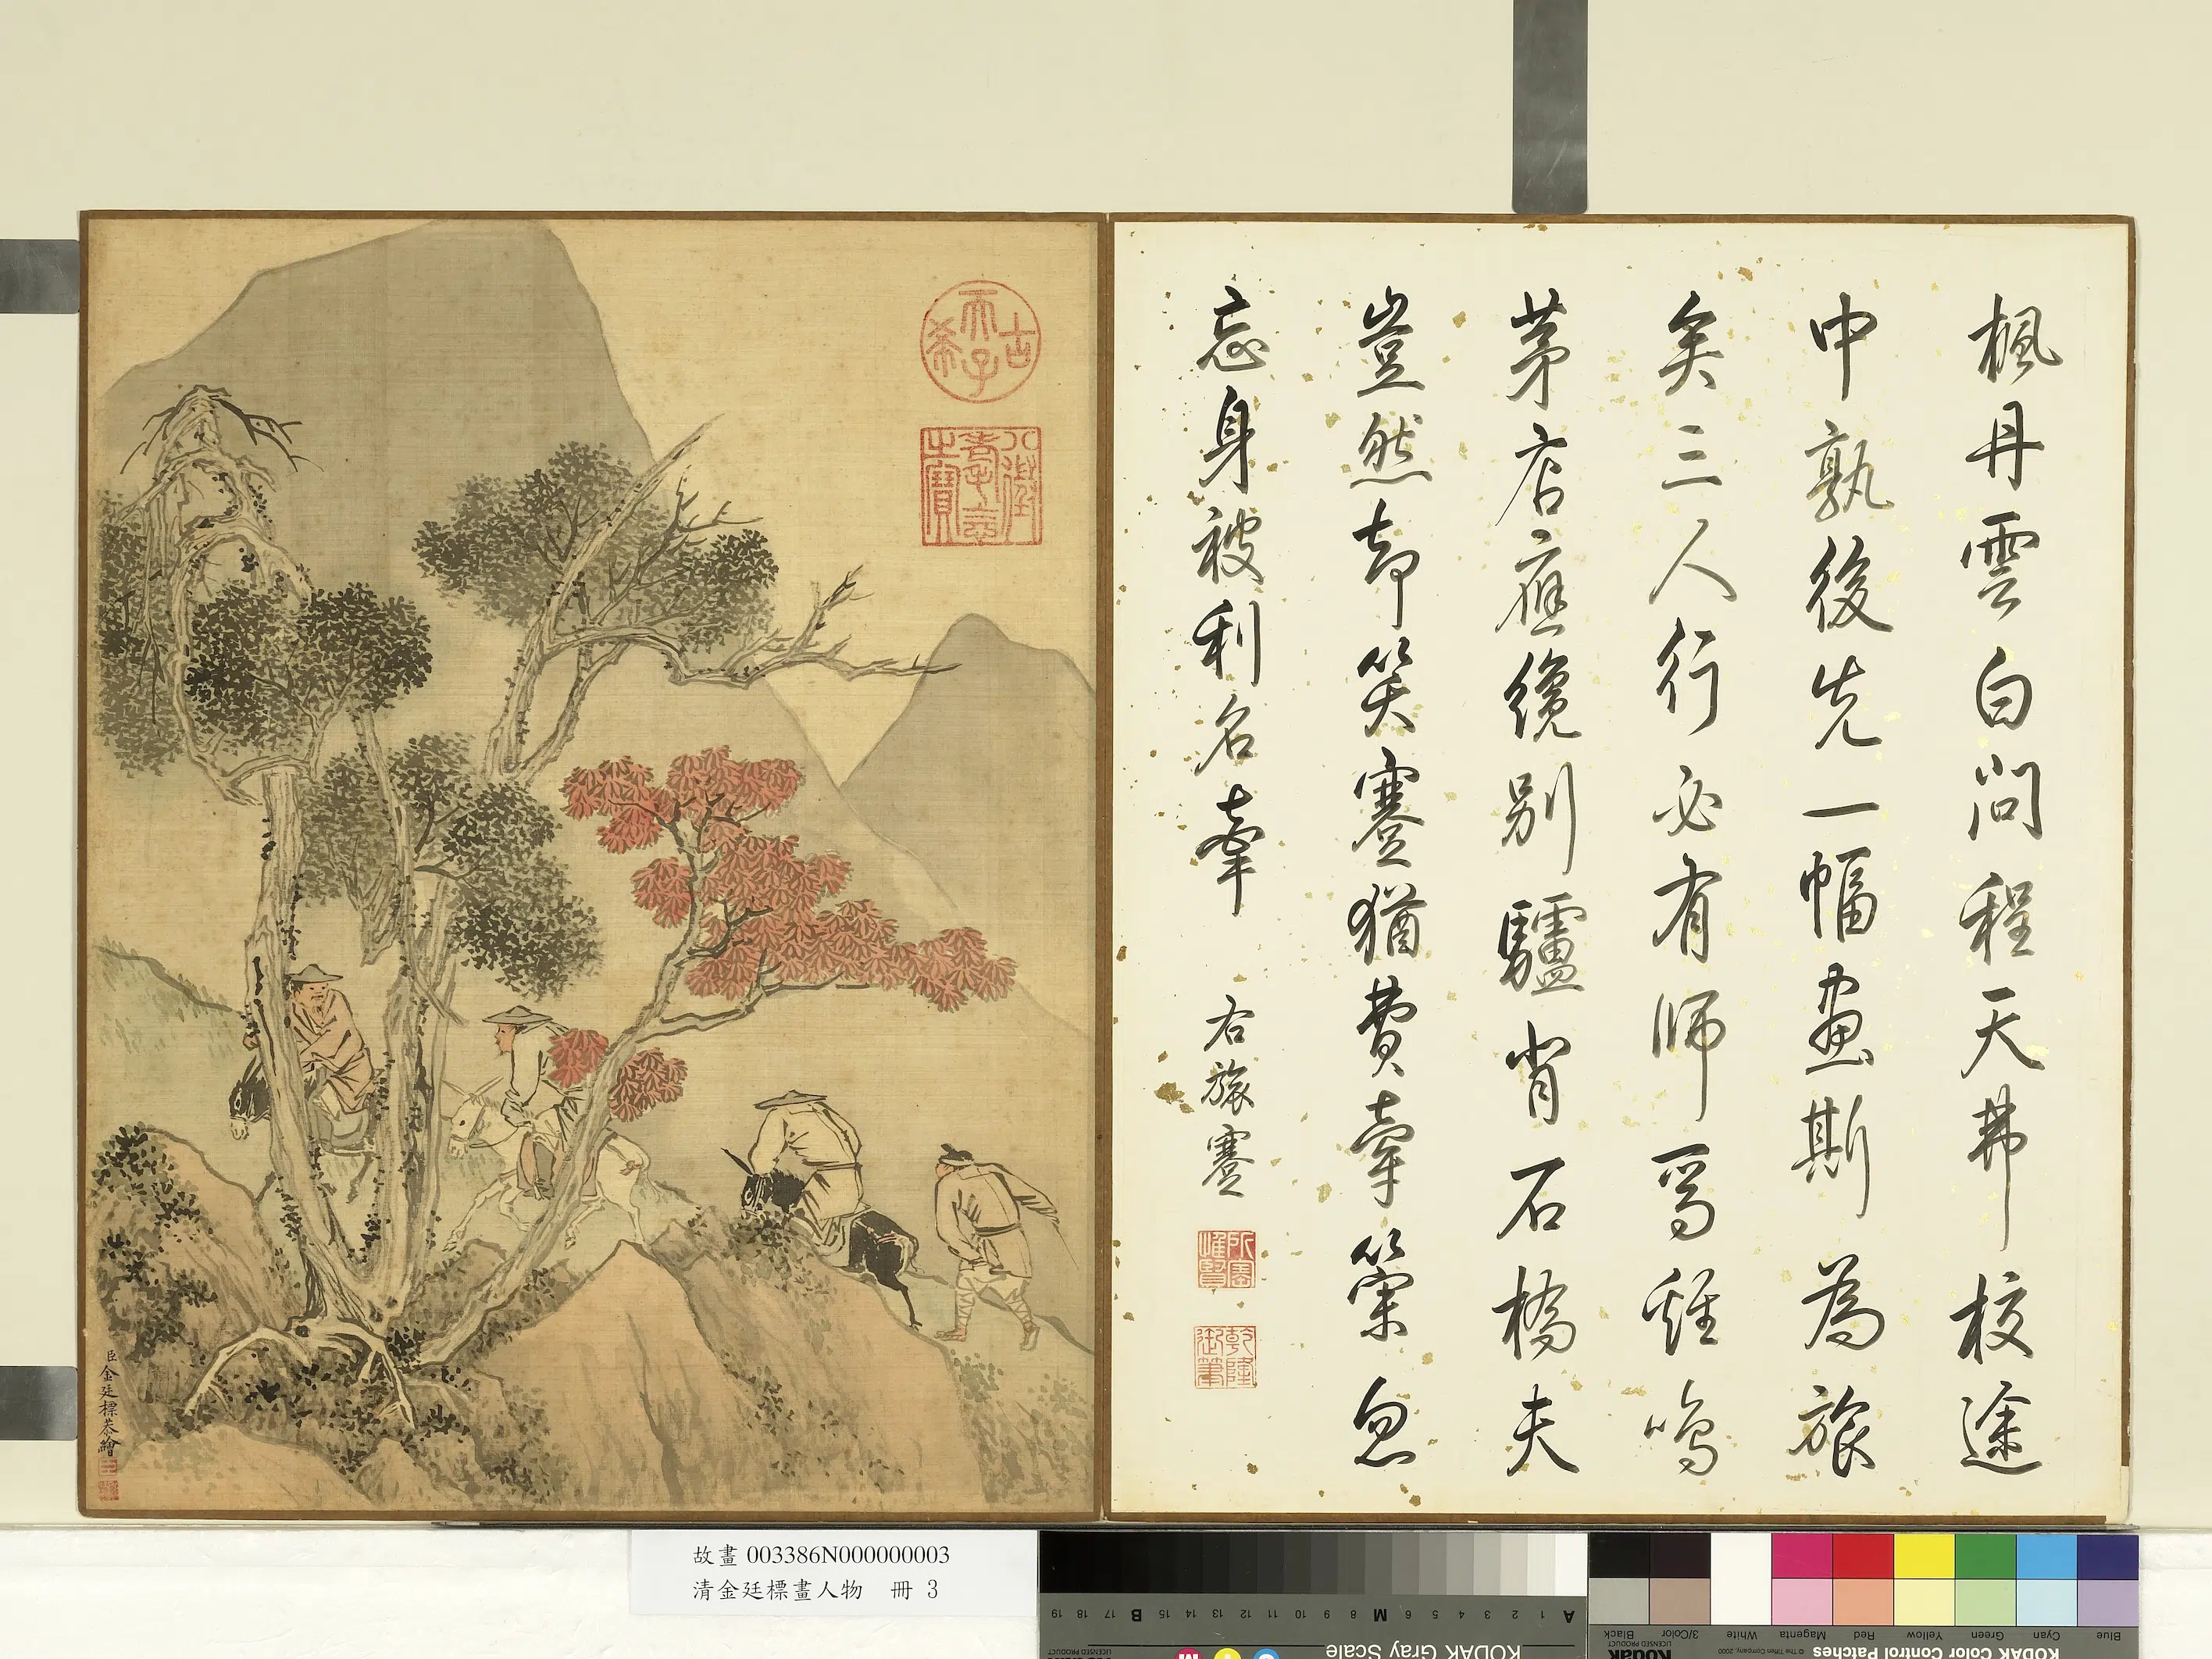 楓丹雲白問程天弗校途
中孰後先一幅畫斯為旅
矣三人行必有師焉雞鳴
茅店應纔別驢背石橋夫
豈然却笑蹇猶費牽策忽
忘身被利名牽 右旅蹇
所寶惟賢
乾隆御筆
古希天子
八徵耄念之寶
臣金廷標恭繪
故畫 003386N000000003
清金廷標畫人物 冊 3
KODAK Gray Scale
LICENSED PRODUCT
A 1 2 3 4 5 6 M 8 9 10 11 12 13 14 15 B 17 18 19
KODAK Color Control Patches
Blue Cyan Green Yellow Red Magenta White 3/Color Black
Kodak
LICENSED PRODUCT